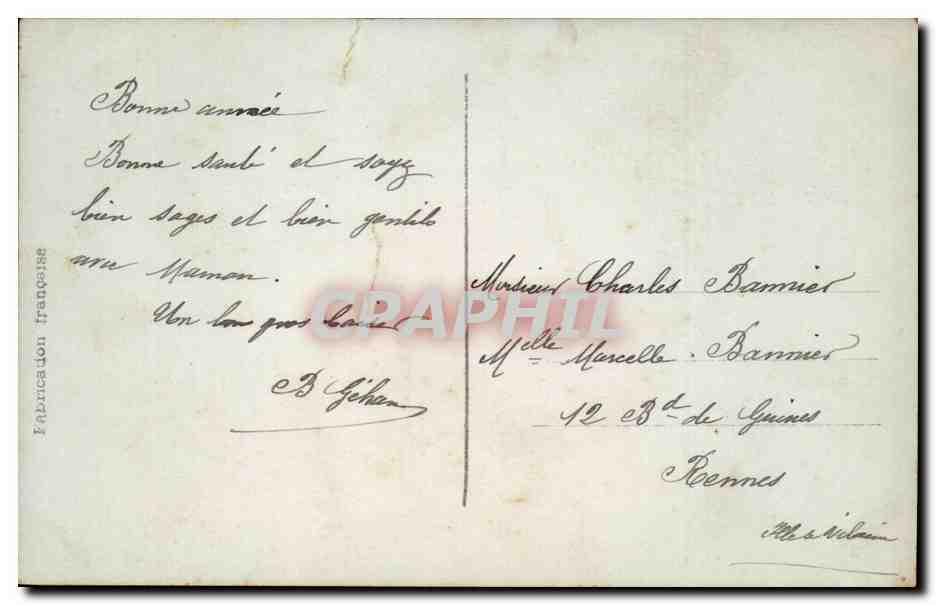 Bonne année
Bonne santé et soyez
bien sages et bien gentils
avec Maman.
Un bon gros baiser
B Géhan
Monsieur Charles Bannier
Melle Marcelle Bannier
12 Bd de Guines
Rennes
Ille & Vilaine
Fabrication française
CPAPHIL